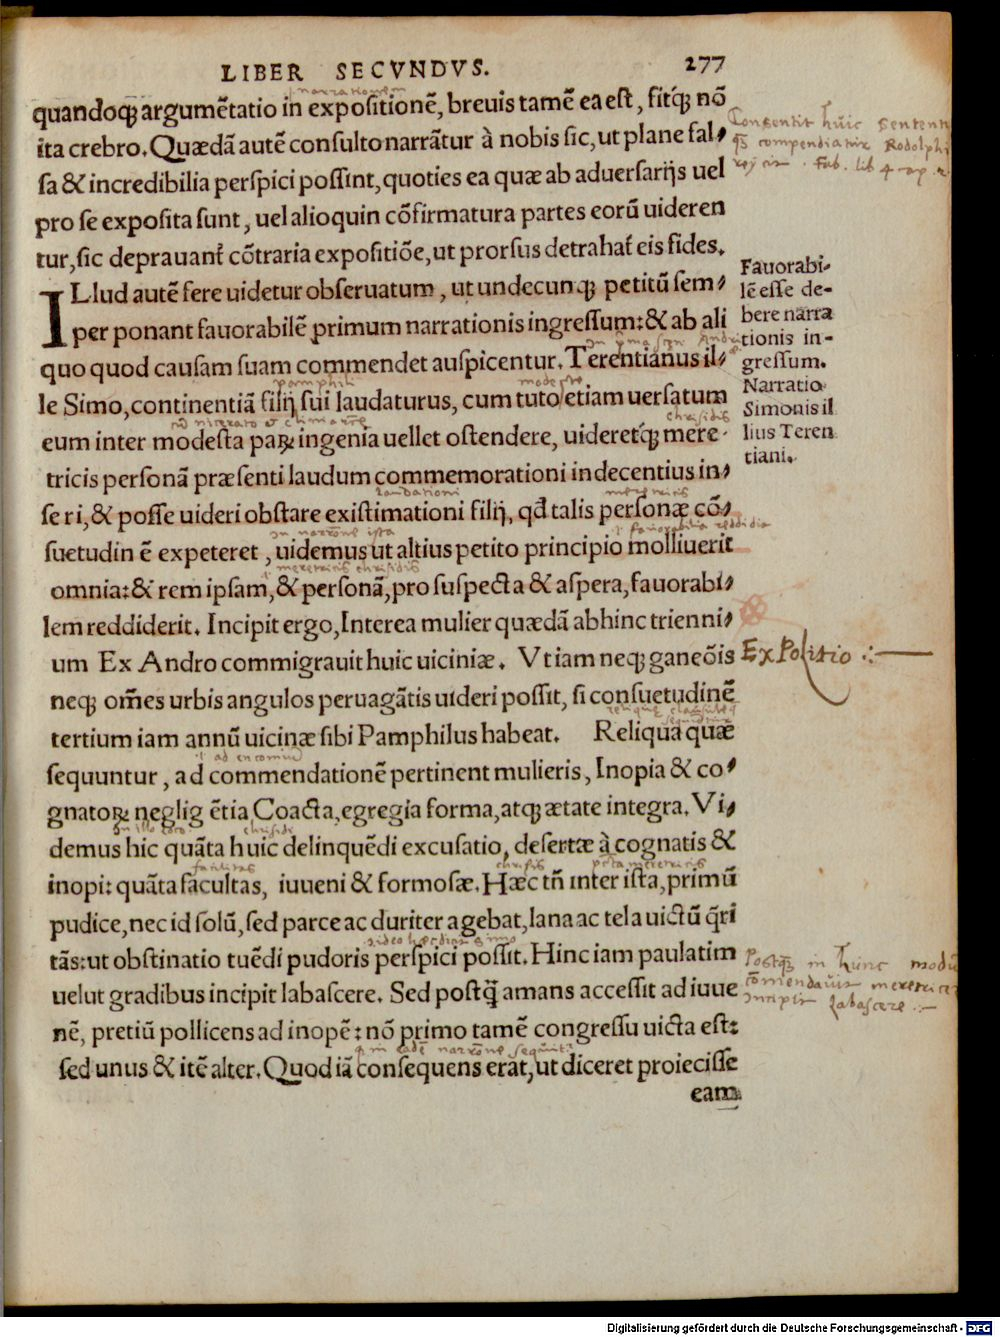 LIBER SECVNDVS. 277
quandoqꝫ argumẽtatio in expositionẽ, breuis tamẽ ea est, fitq́ꝫ nõ
ita crebro. Quædã autẽ consulto narrãtur à nobis sic, ut plane fal-
sa & incredibilia perspici possint, quoties ea quæ ab aduersarijs uel
pro se exposita sunt, uel alioquin cõfirmatura partes eorũ uideren
tur, sic deprauant̃ cõtraria expositiõe, ut prorsus detrahat̃ eis fides.
ILlud autẽ fere uidetur obseruatum, ut undecunqꝫ petitũ sem-
per ponant fauorabilẽ primum narrationis ingressum: & ab ali
quo quod causam suam commendet auspicentur. Terentianus il-
le Simo, continentiã filij sui laudaturus, cum tuto etiam uersatum
eum inter modesta parꝝ ingenia uellet ostendere, uideretq́ꝫ mere-
tricis personã præsenti laudum commemorationi indecentius in-
seri, & posse uideri obstare existimationi filij, qd̃ talis personæ cõ-
suetudinẽ expeteret, uidemus ut altius petito principio molliuerit
omnia: & rem ipsam, & personã, pro suspecta & aspera, fauorabi-
lem reddiderit. Incipit ergo, Interea mulier quædã abhinc trienni-
um Ex Andro commigrauit huic uiciniæ. Vt iam neqꝫ ganeõis
neqꝫ om̃es urbis angulos peruagãtis uideri possit, si consuetudinẽ
tertium iam annũ uicinæ sibi Pamphilus habeat. Reliqua quæ
sequuntur, ad commendationẽ pertinent mulieris, Inopia & co-
gnatoꝝ negligẽtia Coacta, egregia forma, atqꝫ ætate integra. Vi-
demus hic quãta huic delinquẽdi excusatio, desertæ à cognatis &
inopi: quãta facultas, iuueni & formosæ. Hæc tñ inter ista, primũ
pudice, nec id solũ, sed parce ac duriter agebat, lana ac tela uictũ q̃ri
tãs: ut obstinatio tuẽdi pudoris perspici possit. Hinc iam paulatim
uelut gradibus incipit labascere. Sed postq̃ꝫ amans accessit ad iuue
nẽ, pretiũ pollicens ad inopẽ: nõ primo tamẽ congressu uicta est:
sed unus & itẽ alter. Quod iã consequens erat, ut diceret proiecisse
eam
Consentit huic sententi
compendiatrix Rodolphi
Fab. lib 4 cap. 2
Fauorabi-
lẽ esse de-
bere narra
tionis in-
gressum.
Narratio
Simonis il
lius Teren
tiani.
ExPolitio
Postqꝫ in hunc modũ
cõmendauit meretricẽ
incipit labascere
narrationem
pamphili
modeste
chrisidis
laudationi
meretricis
meretricis chrisidis
chrisidi
facilitas
chrisis
Digitalisierung gefördert durch die Deutsche Forschungsgemeinschaft - DFG